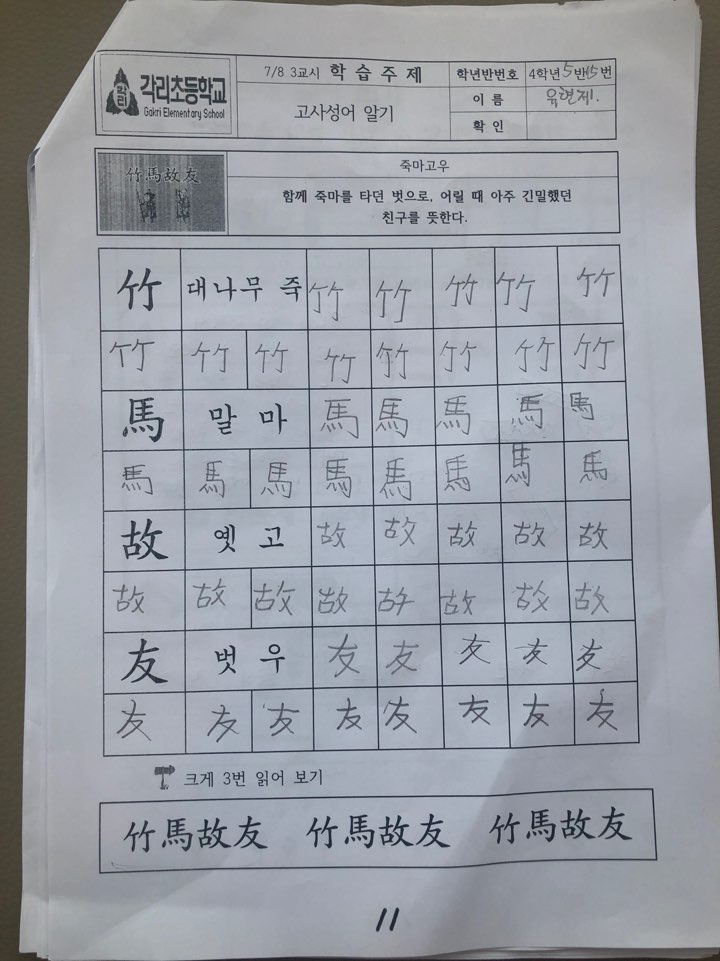 각리
각리초등학교
Gakri Elementary School
7/8 3교시 학습주제
고사성어 알기
학년반번호 4학년 5반 15번
이름 육현제.
확인
竹馬故友
죽마고우
함께 죽마를 타던 벗으로, 어릴 때 아주 긴밀했던
친구를 뜻한다.
竹 대나무 죽 竹 竹 竹 竹 竹
竹 竹 竹 竹 竹 竹 竹 竹
馬 말 마 馬 馬 馬 馬 馬
馬 馬 馬 馬 馬 馬 馬 馬
故 옛 고 故 故 故 故 故
故 故 故 故 故 故 故 故
友 벗 우 友 友 友 友 友
友 友 友 友 友 友 友 友
크게 3번 읽어 보기
竹馬故友 竹馬故友 竹馬故友
11